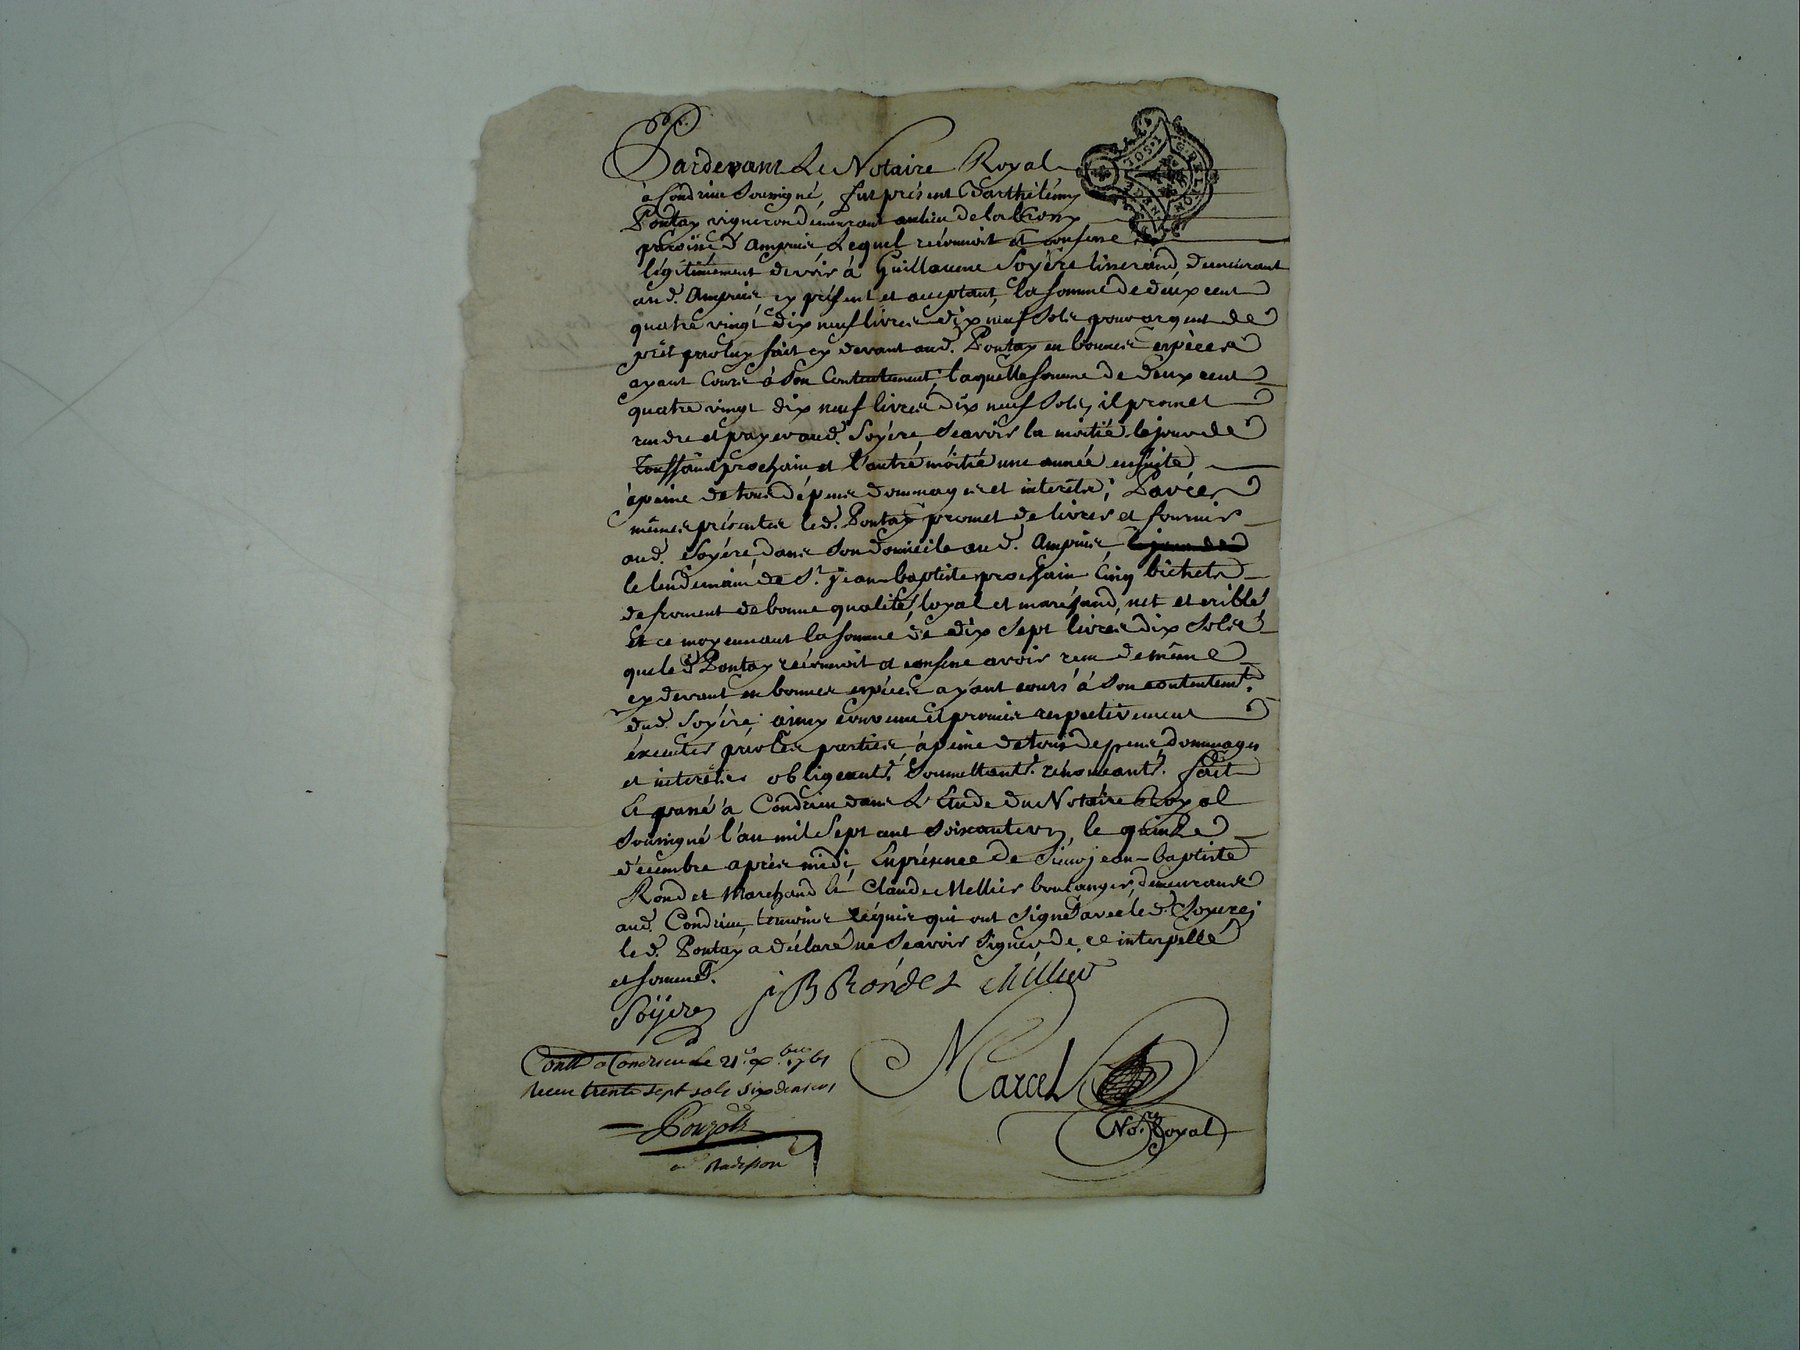 Pardevant Le Notaire Royal
à Condrieu Soussigné, fut présent Barthélémy
Pontay vigneron demeurant au lieu de
paroisse d'Ampuis Lequel reconnoit et confesse
légitimement devoir à Guillaume Soyère tisserand, demeurant
aud. Ampuis, cy présent et acceptant, la somme de deux cent
quatre vingt dix neuf livres dix neuf sols pour argent de
prêt par luy fait cy devant aud. Pontay en bonnes espèces
ayant cours à son Contentement; laquelle somme de deux cent
quatre vingt dix neuf livres dix neuf Sols, il promet
rendre et payer aud. Soyère, Scavoir la moitié le jour de
Toussaint prochain et l'autre moitié une année ensuite
à peine de tous dépens dommages et interêts; Par ces
mêmes présentes led. Pontay promet de livrer et fournir
aud. Soyère, dans Son domicile aud. Ampuis,
le lendemain de St. jean-baptiste prochain Cinq bichets
de froment de bonne qualité, loyal et marchand, net et criblé
Et ce moyennant la somme de dix Sept livres dix Sols
que led. Pontay reconnoit et confesse avoir reçu de même
cy devant en bonnes espèces ayant cours à Son contentemt.
dud. Soyère; ainsy convenu et promis respectivement
éxecuter par les parties à peine de tous depens, dommages
et interêts obligeants. Soumettants. renonceants. fait
Et passé à Condrieu dans L'Etude du Notaire Royal
Soussigné l'an mil Sept cent Soixante un, le quinze
décembre après midi, En présence de Sieur jean-baptiste
Rondet Marchand Et Claude Mellier boulanger, demeurants
aud. Condrieu, temoins requis qui ont Signé avec led. Soyere;
led. Pontay a déclaré ne Scavoir Signer de ce interpellé
et sommé.
Soÿere j B Rondet Mellier
Contlé a Condrieu Le 21e. xbre 1761
Receu trente sept sols six deniers
Marcel
Nore. Royal